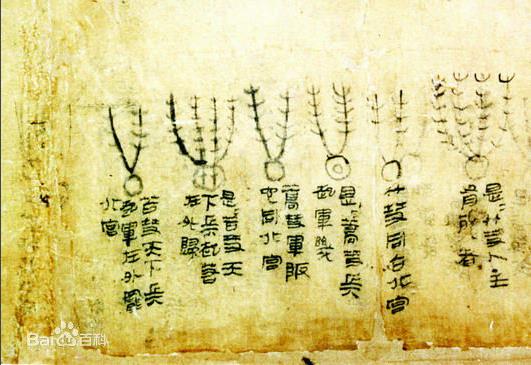 是竹彗人主
有死者
竹彗同占北宮
是蒿彗兵
起軍幾
蒿彗軍阪
它同北宮
是苫彗天
下兵起若
在外歸
苫彗天下兵
起軍在外罷
北宮
Baidu百科